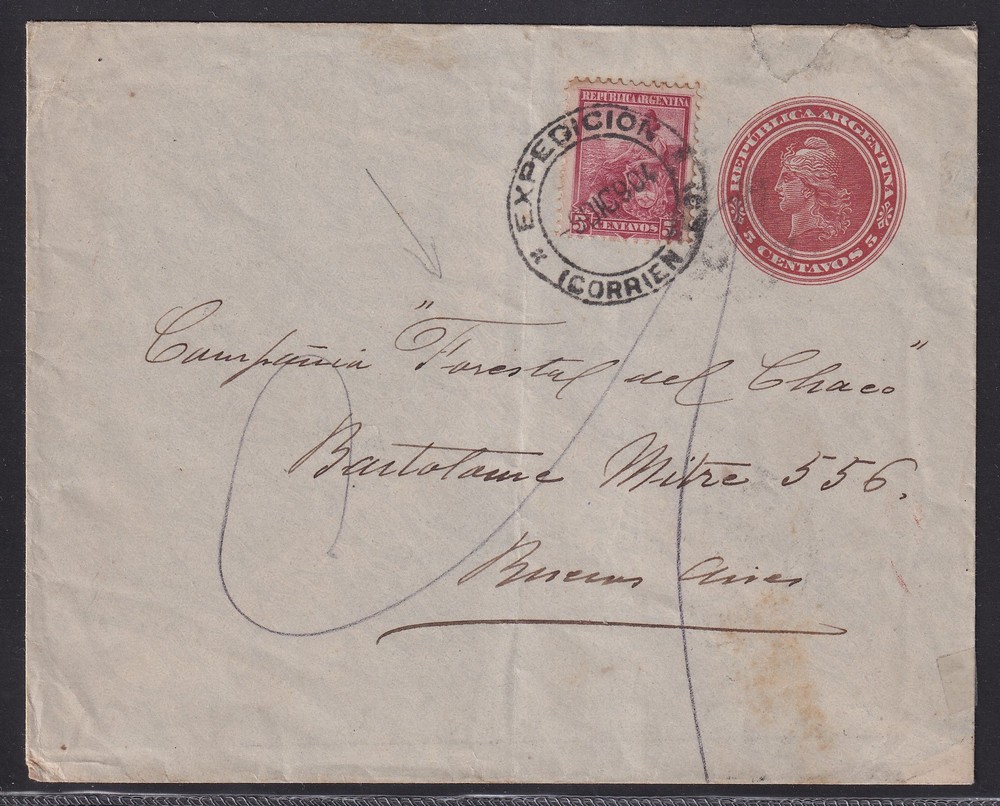 REPÚBLICA ARGENTINA
5 CENTAVOS 5
EXPEDICION
DIC 904
(CORRIEN
REPÚBLICA ARGENTINA
5 CENTAVOS 5
Compañia "Forestal del Chaco"
Bartolome Mitre 556.
Buenos Aires